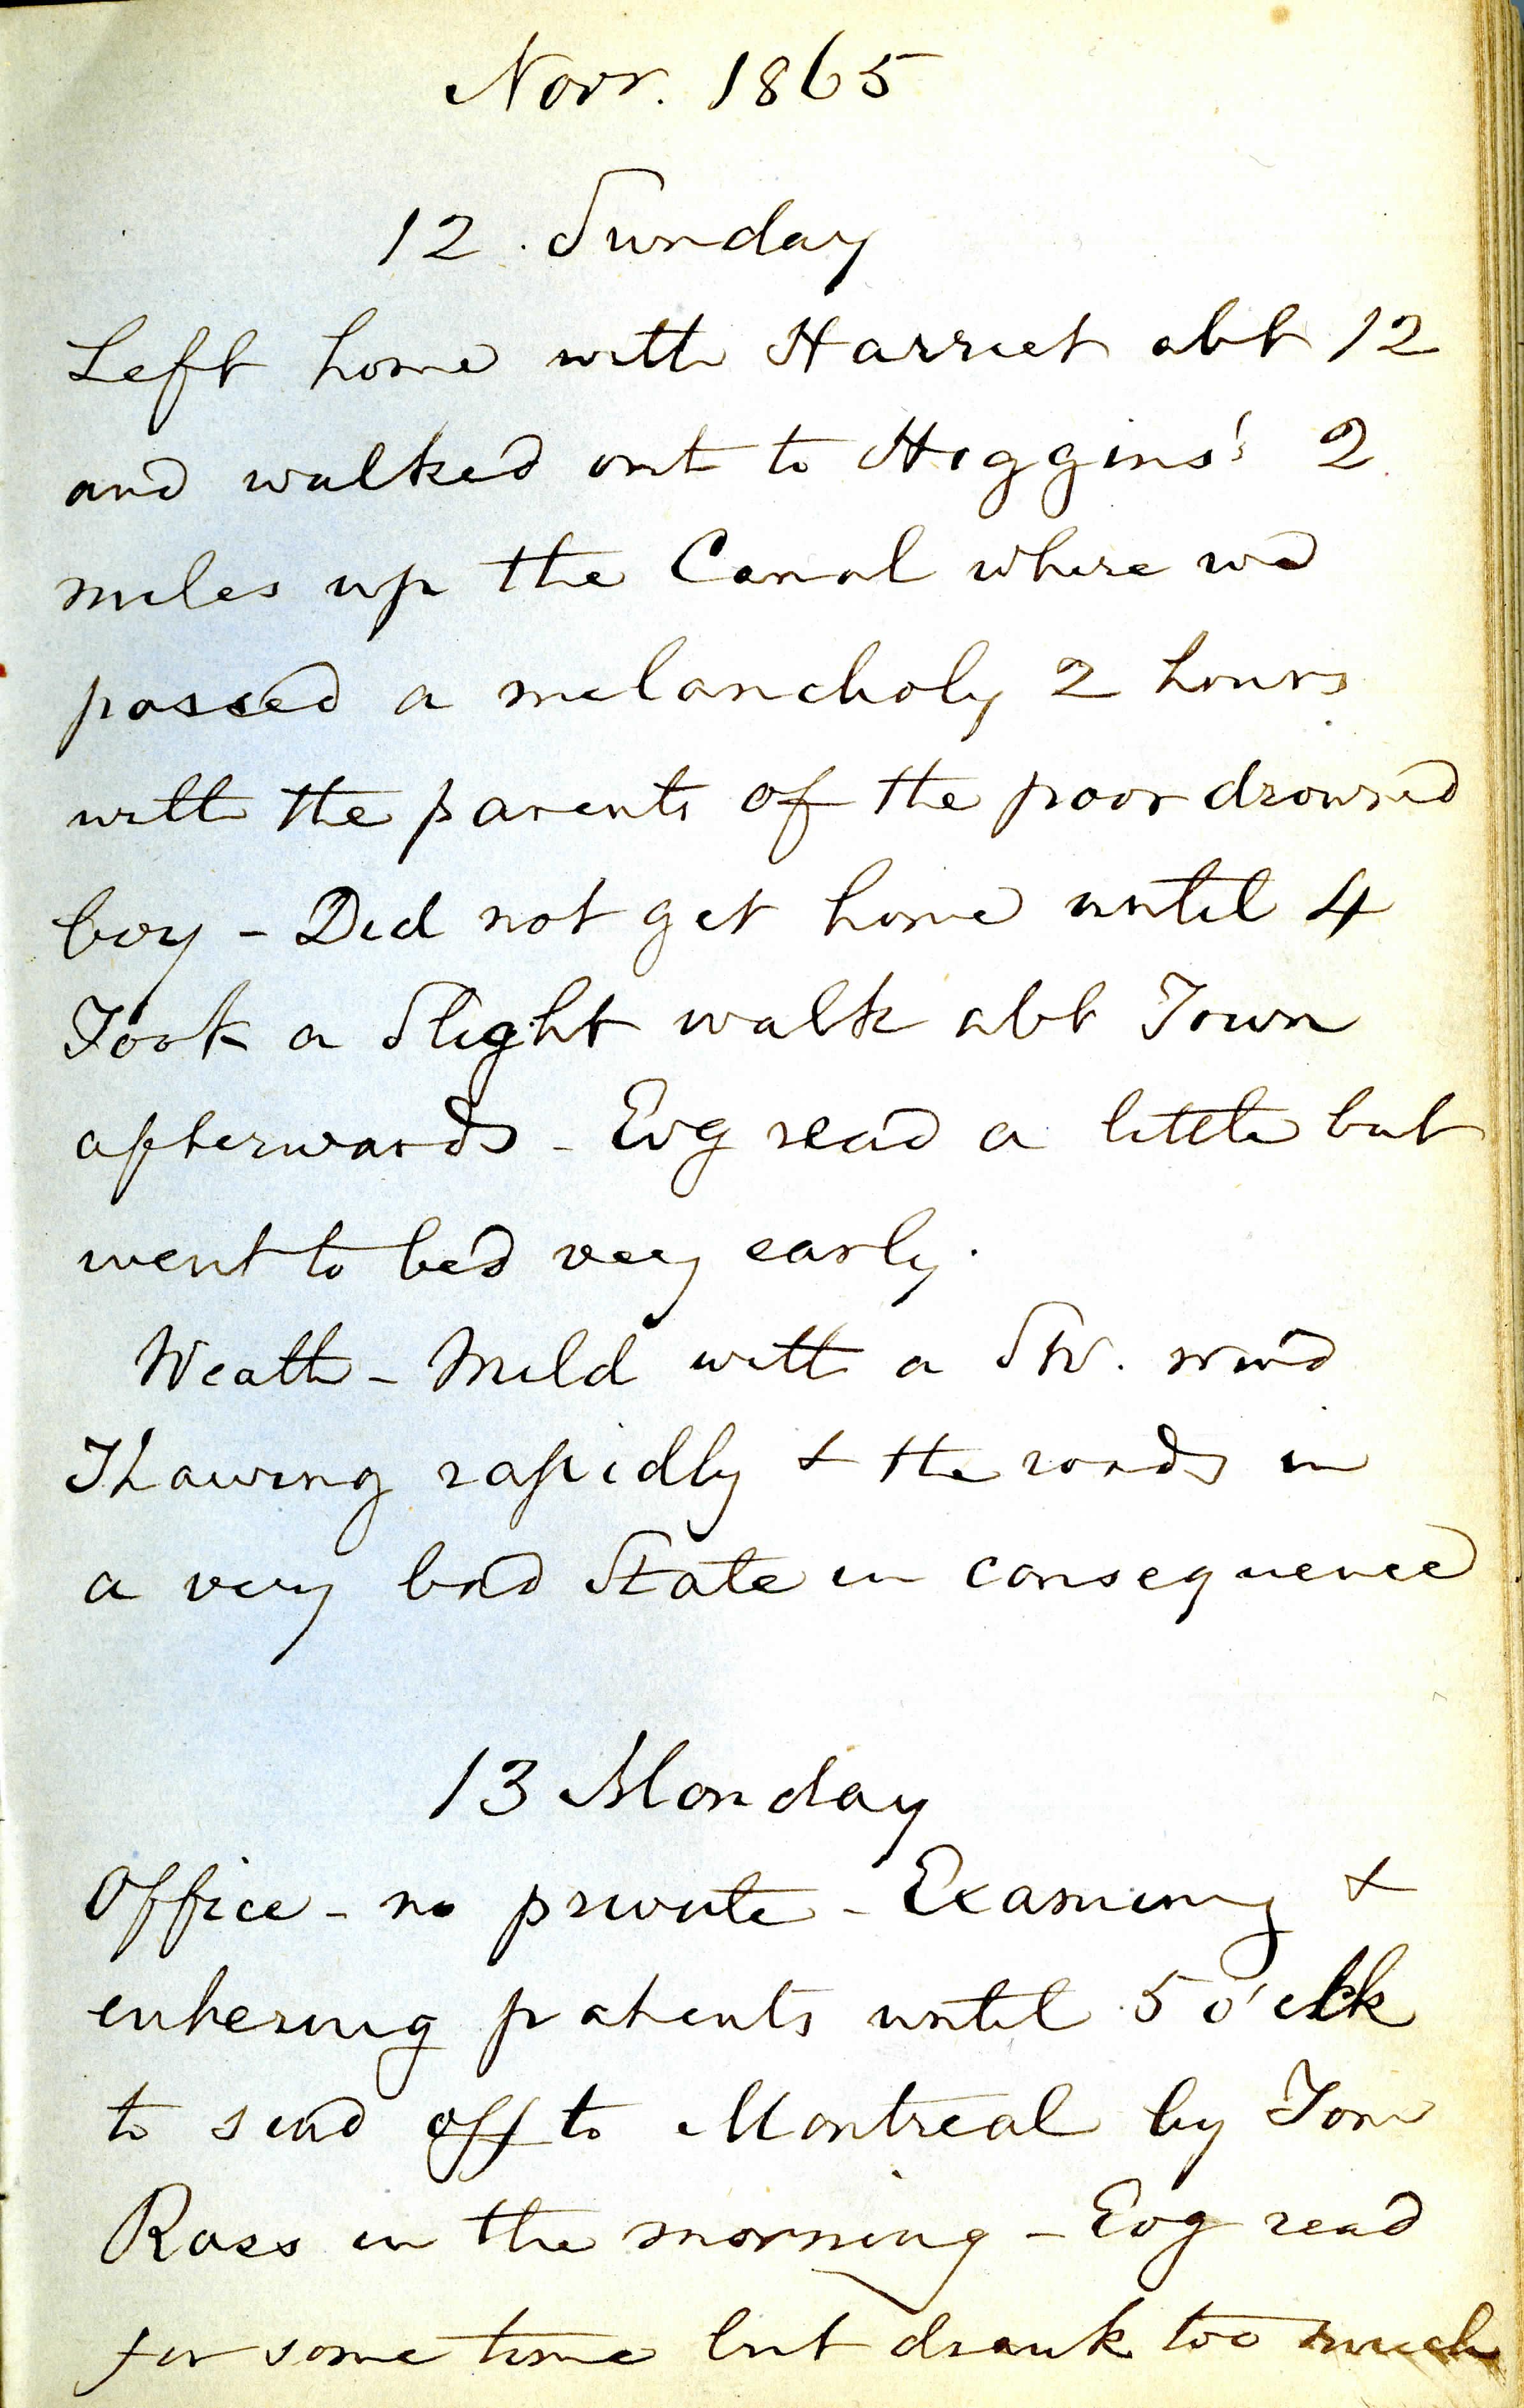 Novr. 1865
12. Sunday
Left home with Harriet abt 12
and walked out to Higgins' 2
miles up the Canal where we
passed a melancholy 2 hours
with the parents of the poor drowned
boy - Did not get home until 4
Took a Slight walk abt Town
afterwards - Evg read a little but
went to bed very early.
Weath - Mild with a SW. wind
Thawing rapidly & the roads in
a very bad State in consequence
13 Monday
Office - no private - Examining &
entering patents until 5 o'clk
to send off to Montreal by Tom
Ross in the morning - Evg read
for some time but drank too much